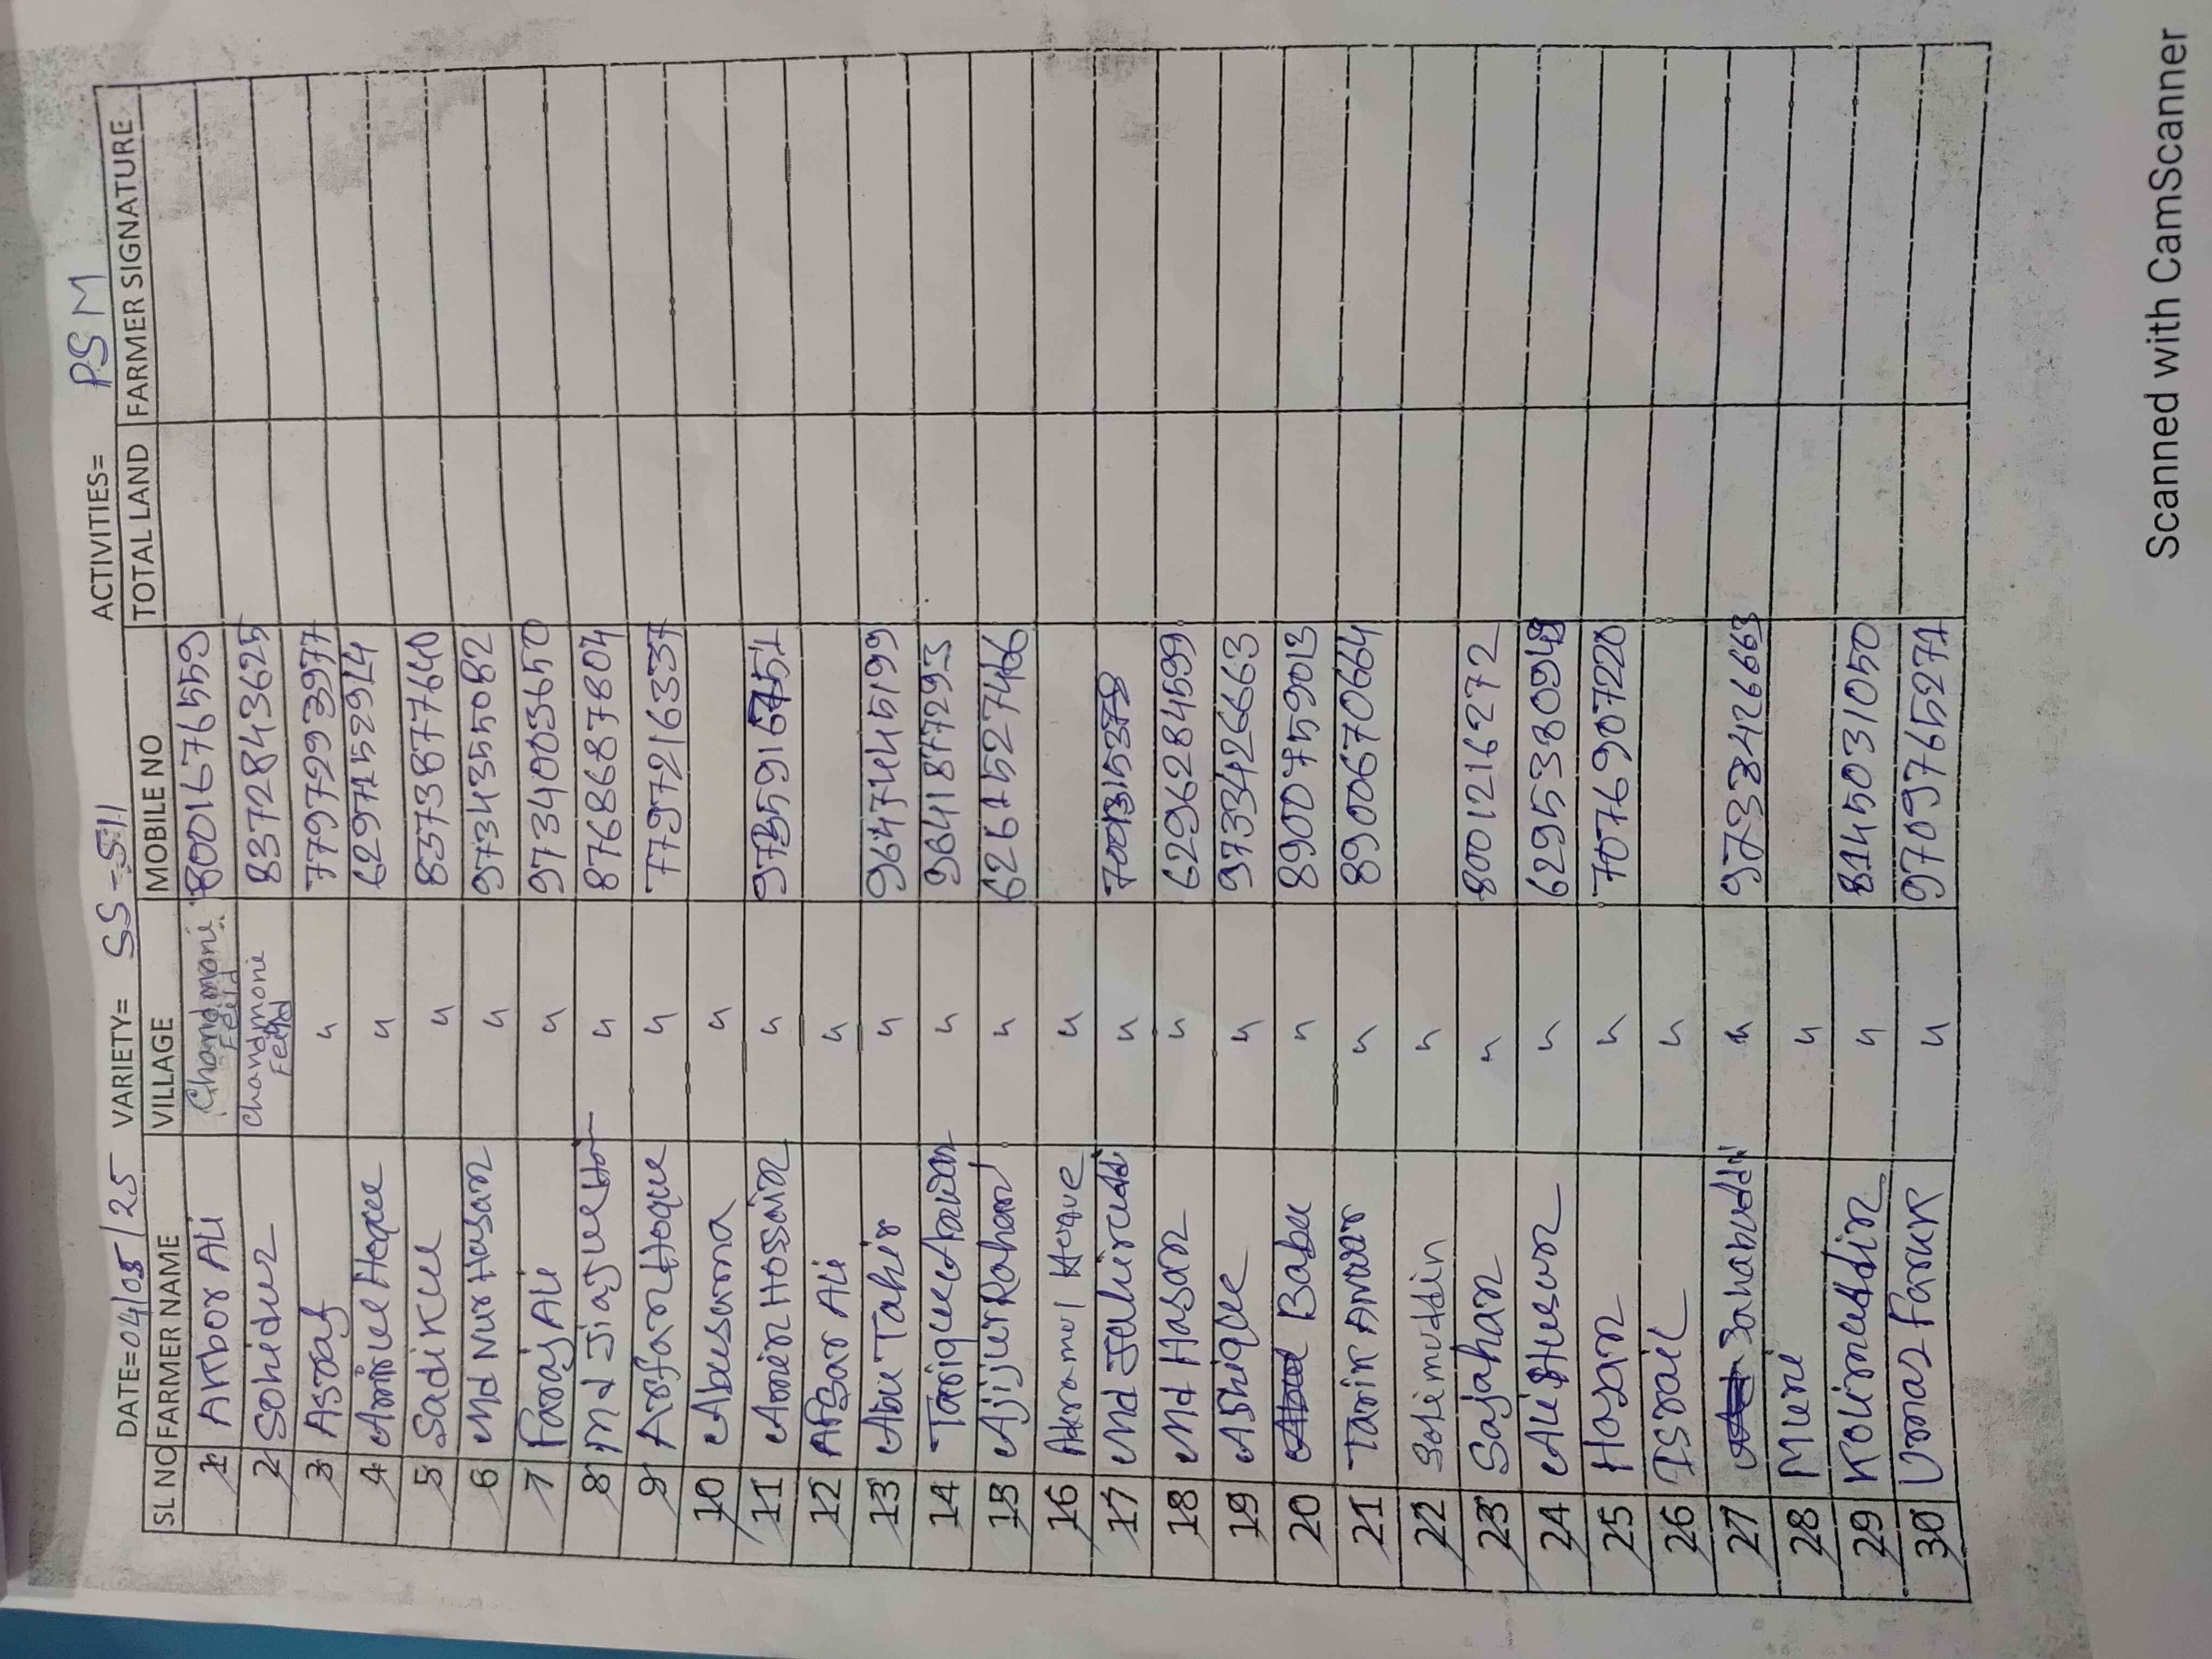 DATE=04/05/25 VARIETY= SS-511 ACTIVITIES= PSM
SL NO FARMER NAME VILLAGE MOBILE NO TOTAL LAND FARMER SIGNATURE
1 Akbor Ali Chandmoni 8001676559
2 Sohidur Chandmoni 8372843625
3 Asraf " 7797993977
4 Amirul Hoque " 6297152914
5 Sadikul " 8373877640
6 Md Nur Hasan " 9734355082
7 Faraj Ali " 9734003650
8 Md Jiagul " 8768687804
9 Arfan Hoque " 7797216337
10 Abusama "
11 Amin Hossain "
12 Afsar Ali "
13 Abu Tahir " 9647445199
14 Tarique " 9641877293
15 Ajijur Rahan " 6261527466
16 Akramul Hoque "
17 Md "
18 Md Hasan " 6296284599
19 Ashique " 9733426663
20 Babu " 8900759013
21 Tarin Anwar " 8900670664
22 Solemuddin "
23 Sajahan " 8001216272
24 Ali Husan "
25 Hosan " 7076907220
26 Israil "
27 " 9733426663
28 Muni "
29 Kolimuddin " 8145031050
30 Umar Faruk " 9709765271
Scanned with CamScanner